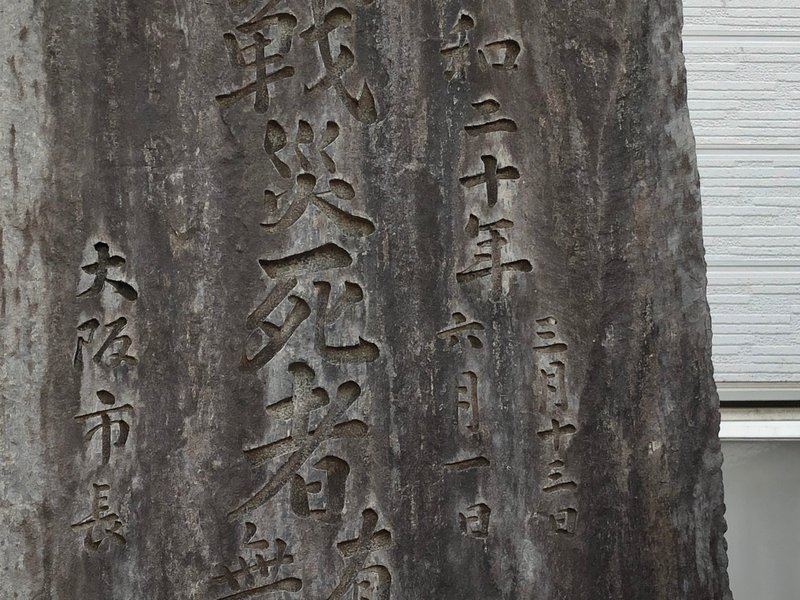 和二十年
三月十三日
六月一日
戰災死者
有
無
大阪市長